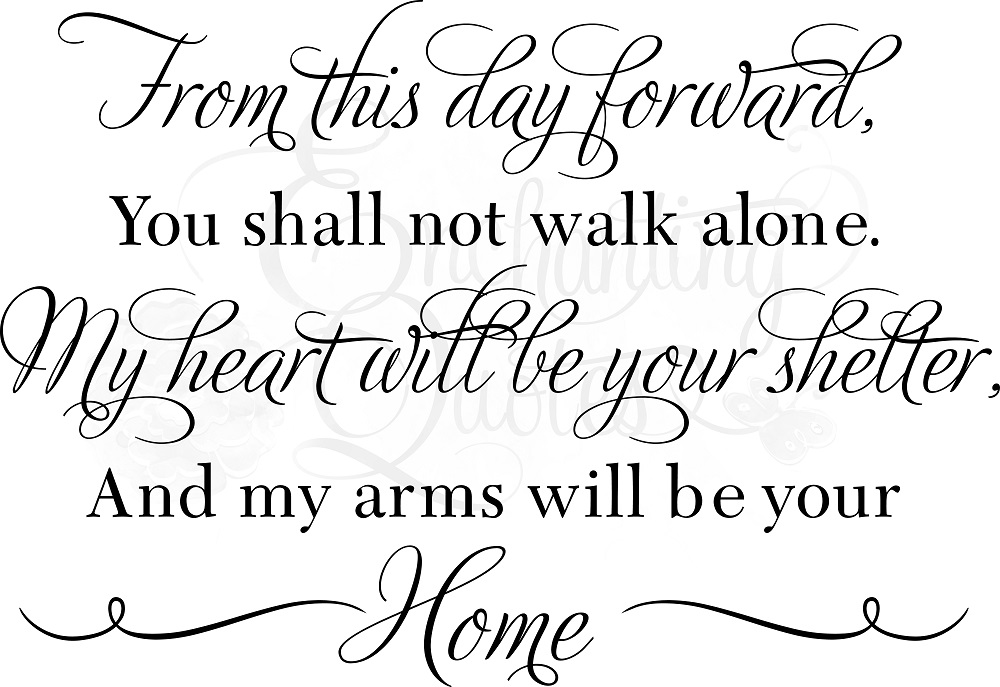 From this day forward,
You shall not walk alone.
My heart will be your shelter,
And my arms will be your
Home
Enchanting
Quotes